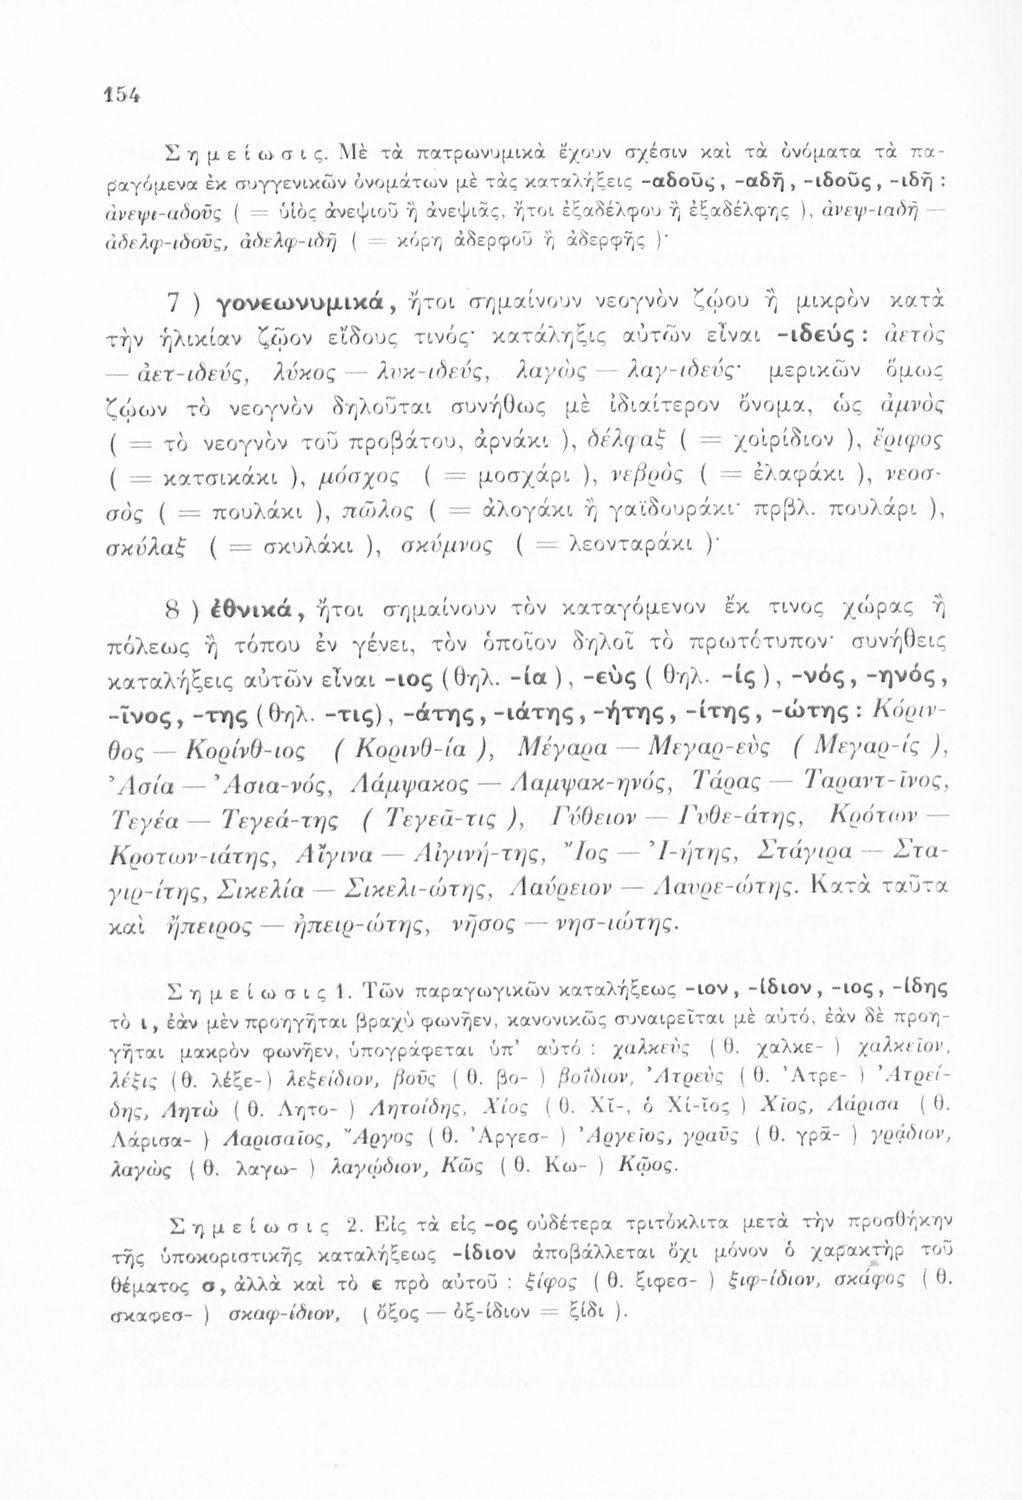 154
Σημείωσις. Μὲ τὰ πατρωνυμικὰ ἔχουν σχέσιν καὶ τὰ ὀνόματα τὰ πα-
ραγόμενα ἐκ συγγενικῶν ὀνομάτων μὲ τὰς καταλήξεις -αδοῦς, -αδῆ, -ιδοῦς, -ιδῆ :
ἀνεψι-αδοῦς ( = υἱὸς ἀνεψιοῦ ἢ ἀνεψιᾶς, ἤτοι ἐξαδέλφου ἢ ἐξαδέλφης ), ἀνεψ-ιαδῆ —
ἀδελφ-ιδοῦς, ἀδελφ-ιδῆ ( = κόρη ἀδερφοῦ ἢ ἀδερφῆς )·
7 ) γονεωνυμικά, ἤτοι σημαίνουν νεογνὸν ζῴου ἢ μικρὸν κατὰ
τὴν ἡλικίαν ζῷον εἴδους τινός· κατάληξις αὐτῶν εἶναι -ιδεύς : ἀετὸς
— ἀετ-ιδεύς, λύκος — λυκ-ιδεύς, λαγὼς — λαγ-ιδεύς· μερικῶν ὅμως
ζῴων τὸ νεογνὸν δηλοῦται συνήθως μὲ ἰδιαίτερον ὄνομα, ὡς ἀμνὸς
( = τὸ νεογνὸν τοῦ προβάτου, ἀρνάκι ), δέλφαξ ( = χοιρίδιον ), ἔριφος
( = κατσικάκι ), μόσχος ( = μοσχάρι ), νεβρὸς ( = ἐλαφάκι ), νεοσ-
σὸς ( = πουλάκι ), πῶλος ( = ἀλογάκι ἢ γαϊδουράκι· πρβλ. πουλάρι ),
σκύλαξ ( = σκυλάκι ), σκύμνος ( = λεονταράκι )·
8 ) ἐθνικά, ἤτοι σημαίνουν τὸν καταγόμενον ἔκ τινος χώρας ἢ
πόλεως ἢ τόπου ἐν γένει, τὸν ὁποῖον δηλοῖ τὸ πρωτότυπον· συνήθεις
καταλήξεις αὐτῶν εἶναι -ιος (θηλ. -ία ), -εὺς ( θηλ. -ίς ), -νός, -ηνός,
-ῖνος, -της (θηλ. -τις), -άτης, -ιάτης, -ήτης, -ίτης, -ώτης : Κόριν-
θος — Κορίνθ-ιος ( Κορινθ-ία ), Μέγαρα — Μεγαρ-εὺς ( Μεγαρ-ίς ),
Ἀσία — Ἀσια-νός, Λάμψακος — Λαμψακ-ηνός, Τάρας — Ταραντ-ῖνος,
Τεγέα — Τεγεά-της ( Τεγεᾶ-τις ), Γύθειον — Γυθε-άτης, Κρότων —
Κροτων-ιάτης, Αἴγινα — Αἰγινή-της, Ἴος — Ἰ-ήτης, Στάγιρα — Στα-
γιρ-ίτης, Σικελία — Σικελι-ώτης, Λαύρειον — Λαυρε-ώτης. Κατὰ ταῦτα
καὶ ἤπειρος — ἠπειρ-ώτης, νῆσος — νησ-ιώτης.
Σημείωσις 1. Τῶν παραγωγικῶν καταλήξεως -ιον, -ίδιον, -ιος, -ίδης
τὸ ι, ἐὰν μὲν προηγῆται βραχὺ φωνῆεν, κανονικῶς συναιρεῖται μὲ αὐτό, ἐὰν δὲ προη-
γῆται μακρὸν φωνῆεν, ὑπογράφεται ὑπ' αὐτό : χαλκεὺς ( θ. χαλκε- ) χαλκεῖον,
λέξις (θ. λέξε-) λεξείδιον, βοῦς ( θ. βο- ) βοΐδιον, Ἀτρεὺς ( θ. Ἀτρε- ) Ἀτρεί-
δης, Λητὼ ( θ. Λητο- ) Λητοίδης, Χίος ( θ. Χῑ-, ὁ Χί-ῑος ) Χῖος, Λάρισα ( θ.
Λάρισα- ) Λαρισαῖος, Ἄργος ( θ. Ἀργεσ- ) Ἀργεῖος, γραῦς ( θ. γρᾱ- ) γρᾴδιον,
λαγὼς ( θ. λαγω- ) λαγῴδιον, Κῶς ( θ. Κω- ) Κῷος.
Σημείωσις 2. Εἰς τὰ εἰς -ος οὐδέτερα τριτόκλιτα μετὰ τὴν προσθήκην
τῆς ὑποκοριστικῆς καταλήξεως -ίδιον ἀποβάλλεται ὄχι μόνον ὁ χαρακτὴρ τοῦ
θέματος σ, ἀλλὰ καὶ τὸ ε πρὸ αὐτοῦ : ξίφος ( θ. ξιφεσ- ) ξιφ-ίδιον, σκάφος ( θ.
σκαφεσ- ) σκαφ-ίδιον, ( ὄξος — ὀξ-ίδιον = ξίδι ).